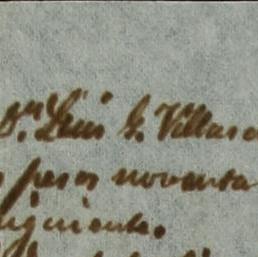 Sr. Luis G. Villase
pesos noventa
siguiente.